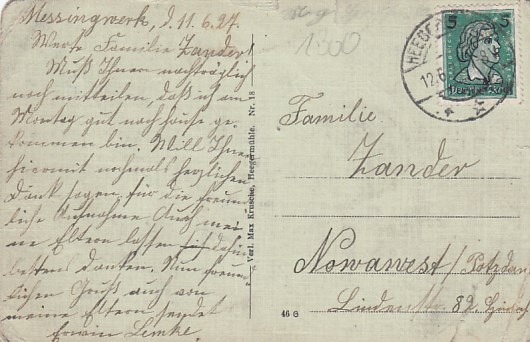 Messingwerk, d. 11.6.27.
Werte Familie Zander!
Muß Ihnen nachträglich
noch mitteilen, daß ich am
Montag gut nach Hause ge-
kommen bin. Will Ihnen
hiermit nochmals herzlichen
Dank sagen, für die freund-
liche Aufnahme. Auch mei-
ne Eltern lassen bestens danken. Nun
lichen Gruß auch von
meine Eltern sendet
Erwin Lemke.
Verl. Max Krusche, Heegermühle. Nr. 18
1300
5 5
HEEGER
12.6.
Familie
Zander
Nowawest / Potsdam
Lindenstr. 82.
46 G